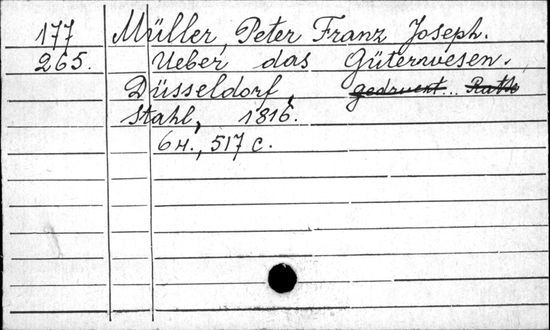 177 Müller, Peter Franz Joseph.
265. Ueber das Güterwesen.
Düsseldorf, gedruckt.. Rath
Stahl, 1816.
6 н., 517 с.